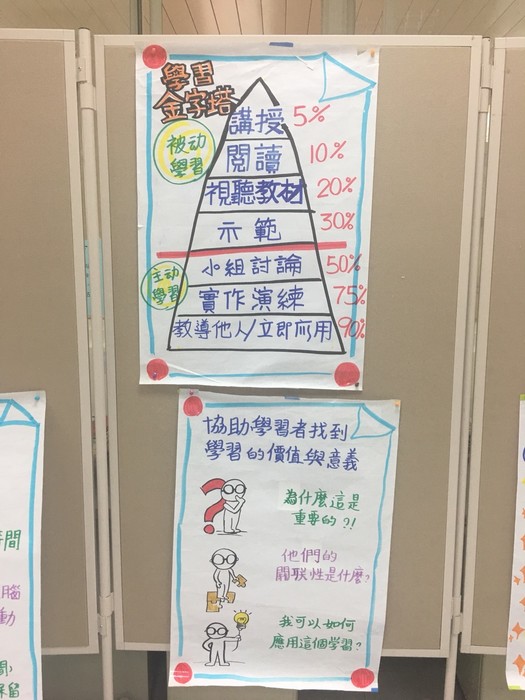 學習
金字塔
被动
學習
講授 5%
閱讀 10%
視聽教材 20%
示範 30%
主动
學習
小組討論 50%
實作演練 75%
教導他人/立即应用 90%
協助學習者找到
學習的價值與意義
為什麼這是
重要的?!
他們的
関联性是什麼?
我可以如何
應用這個學習?
時間
腦
動
保留